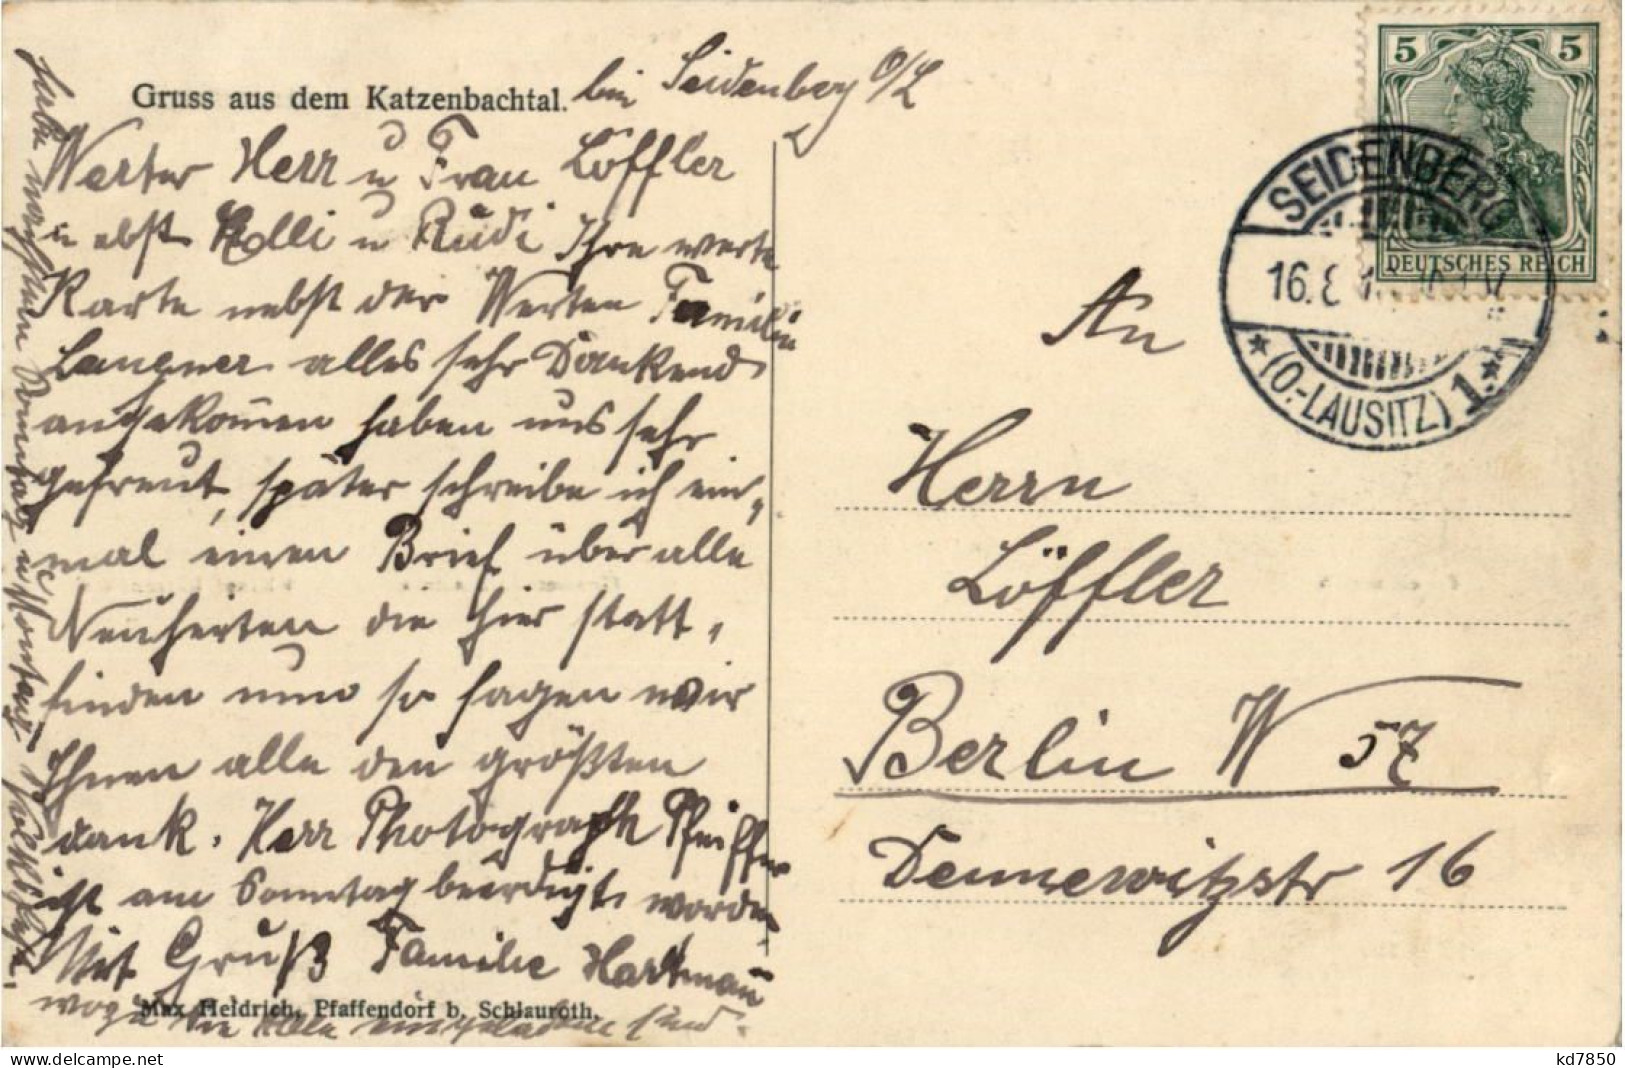 Gruss aus dem Katzenbachtal. bei Seidenberg O/L
Werter Herr u Frau Löffler
nebst Elli u Rudi Ihre werte
Karte nebst der Werten Familie
Langner alles sehr Dankend
angekom̄en haben uns sehr
gefreut, später schreibe ich ein-
mal einen Brief über alle
Neuheiten die hier statt-
finden nun so sagen wir
Ihnen alle den größten
dank. Herr Photograph Pfeiffer
ist am Sonntag beerdigt worden
Mit Gruß Familie Hartman̄
habe nächsten Sonntag u Montag Volksfest
wozu Sie Alle eingeladen sind.
Max Heidrich, Pfaffendorf b. Schlauroth.
5 5
DEUTSCHES REICH
SEIDENBERG
16.8
* (O.-LAUSITZ) 1. *
An
Herrn
Löffler
Berlin W 57
Dennewitzstr 16
kd7850